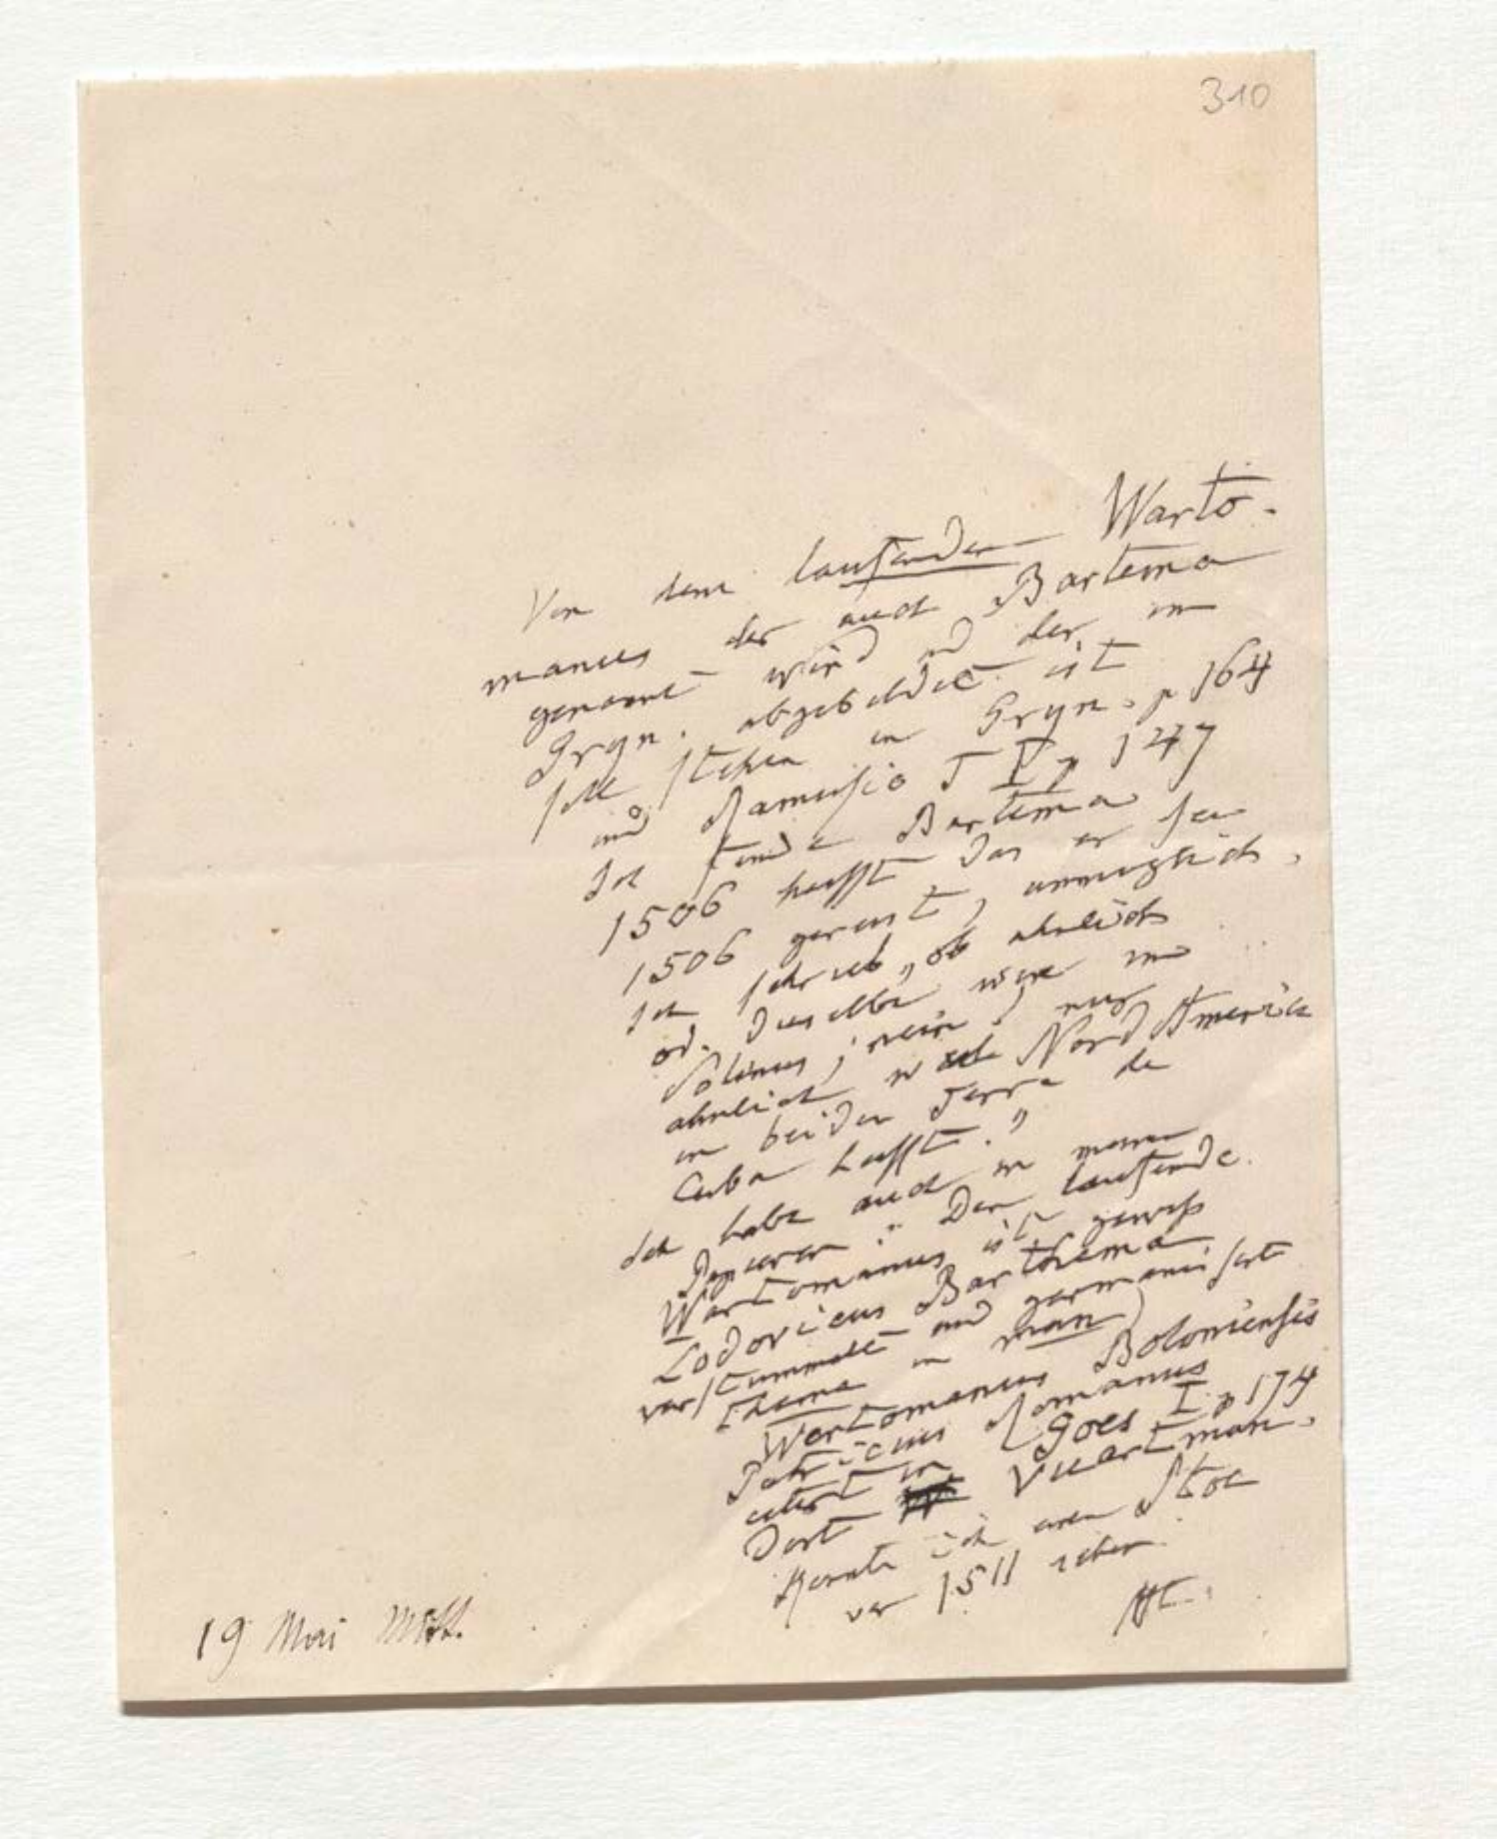 310
Von dem laufenden Warto-
manus der auch Bartema
genannt wird und der im
Gryn. abgebildet ist
soll stehen in Gryn. p 164
und Ramusio T I p 147
Ich finde Bartema sei
1506 heißt das er sei
1506 gereist, unmöglich.
Ich schrieb „ob ahnlich
od. dieselbe wie im
Solinus; nein, nur
ahnlich weil Nord America
in beiden Terra de
Cuba heißt."
Ich habe auch in meinen
Papieren: Der laufende
Wartomanus ist gewiß
Lodovicus Barthema
verstümmelt und germanisirt
thema in man)
Wartomanus Boloniensis
Patricius Romanus
citirt in Goes I p 174
Dort Vuartman.
Konnte ich einen Stob
vor 1511 sehen.
Ht.
19 Mai Mitt.